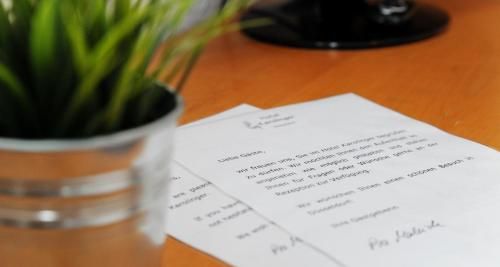 Hotel
Karolinger
Liebe Gäste,
wir freuen uns, Sie im Hotel Karolinger begrüßen
zu dürfen. Wir möchten Ihnen den Aufenthalt so
angenehm wie möglich gestalten und stehen
Ihnen für Fragen oder Wünsche gerne an der
Rezeption zur Verfügung.
Wir wünschen Ihnen einen schönen Besuch in
Düsseldorf.
Ihre Gastgeberin
are pleas
Karolinger
If you have
not hesitate
We wish